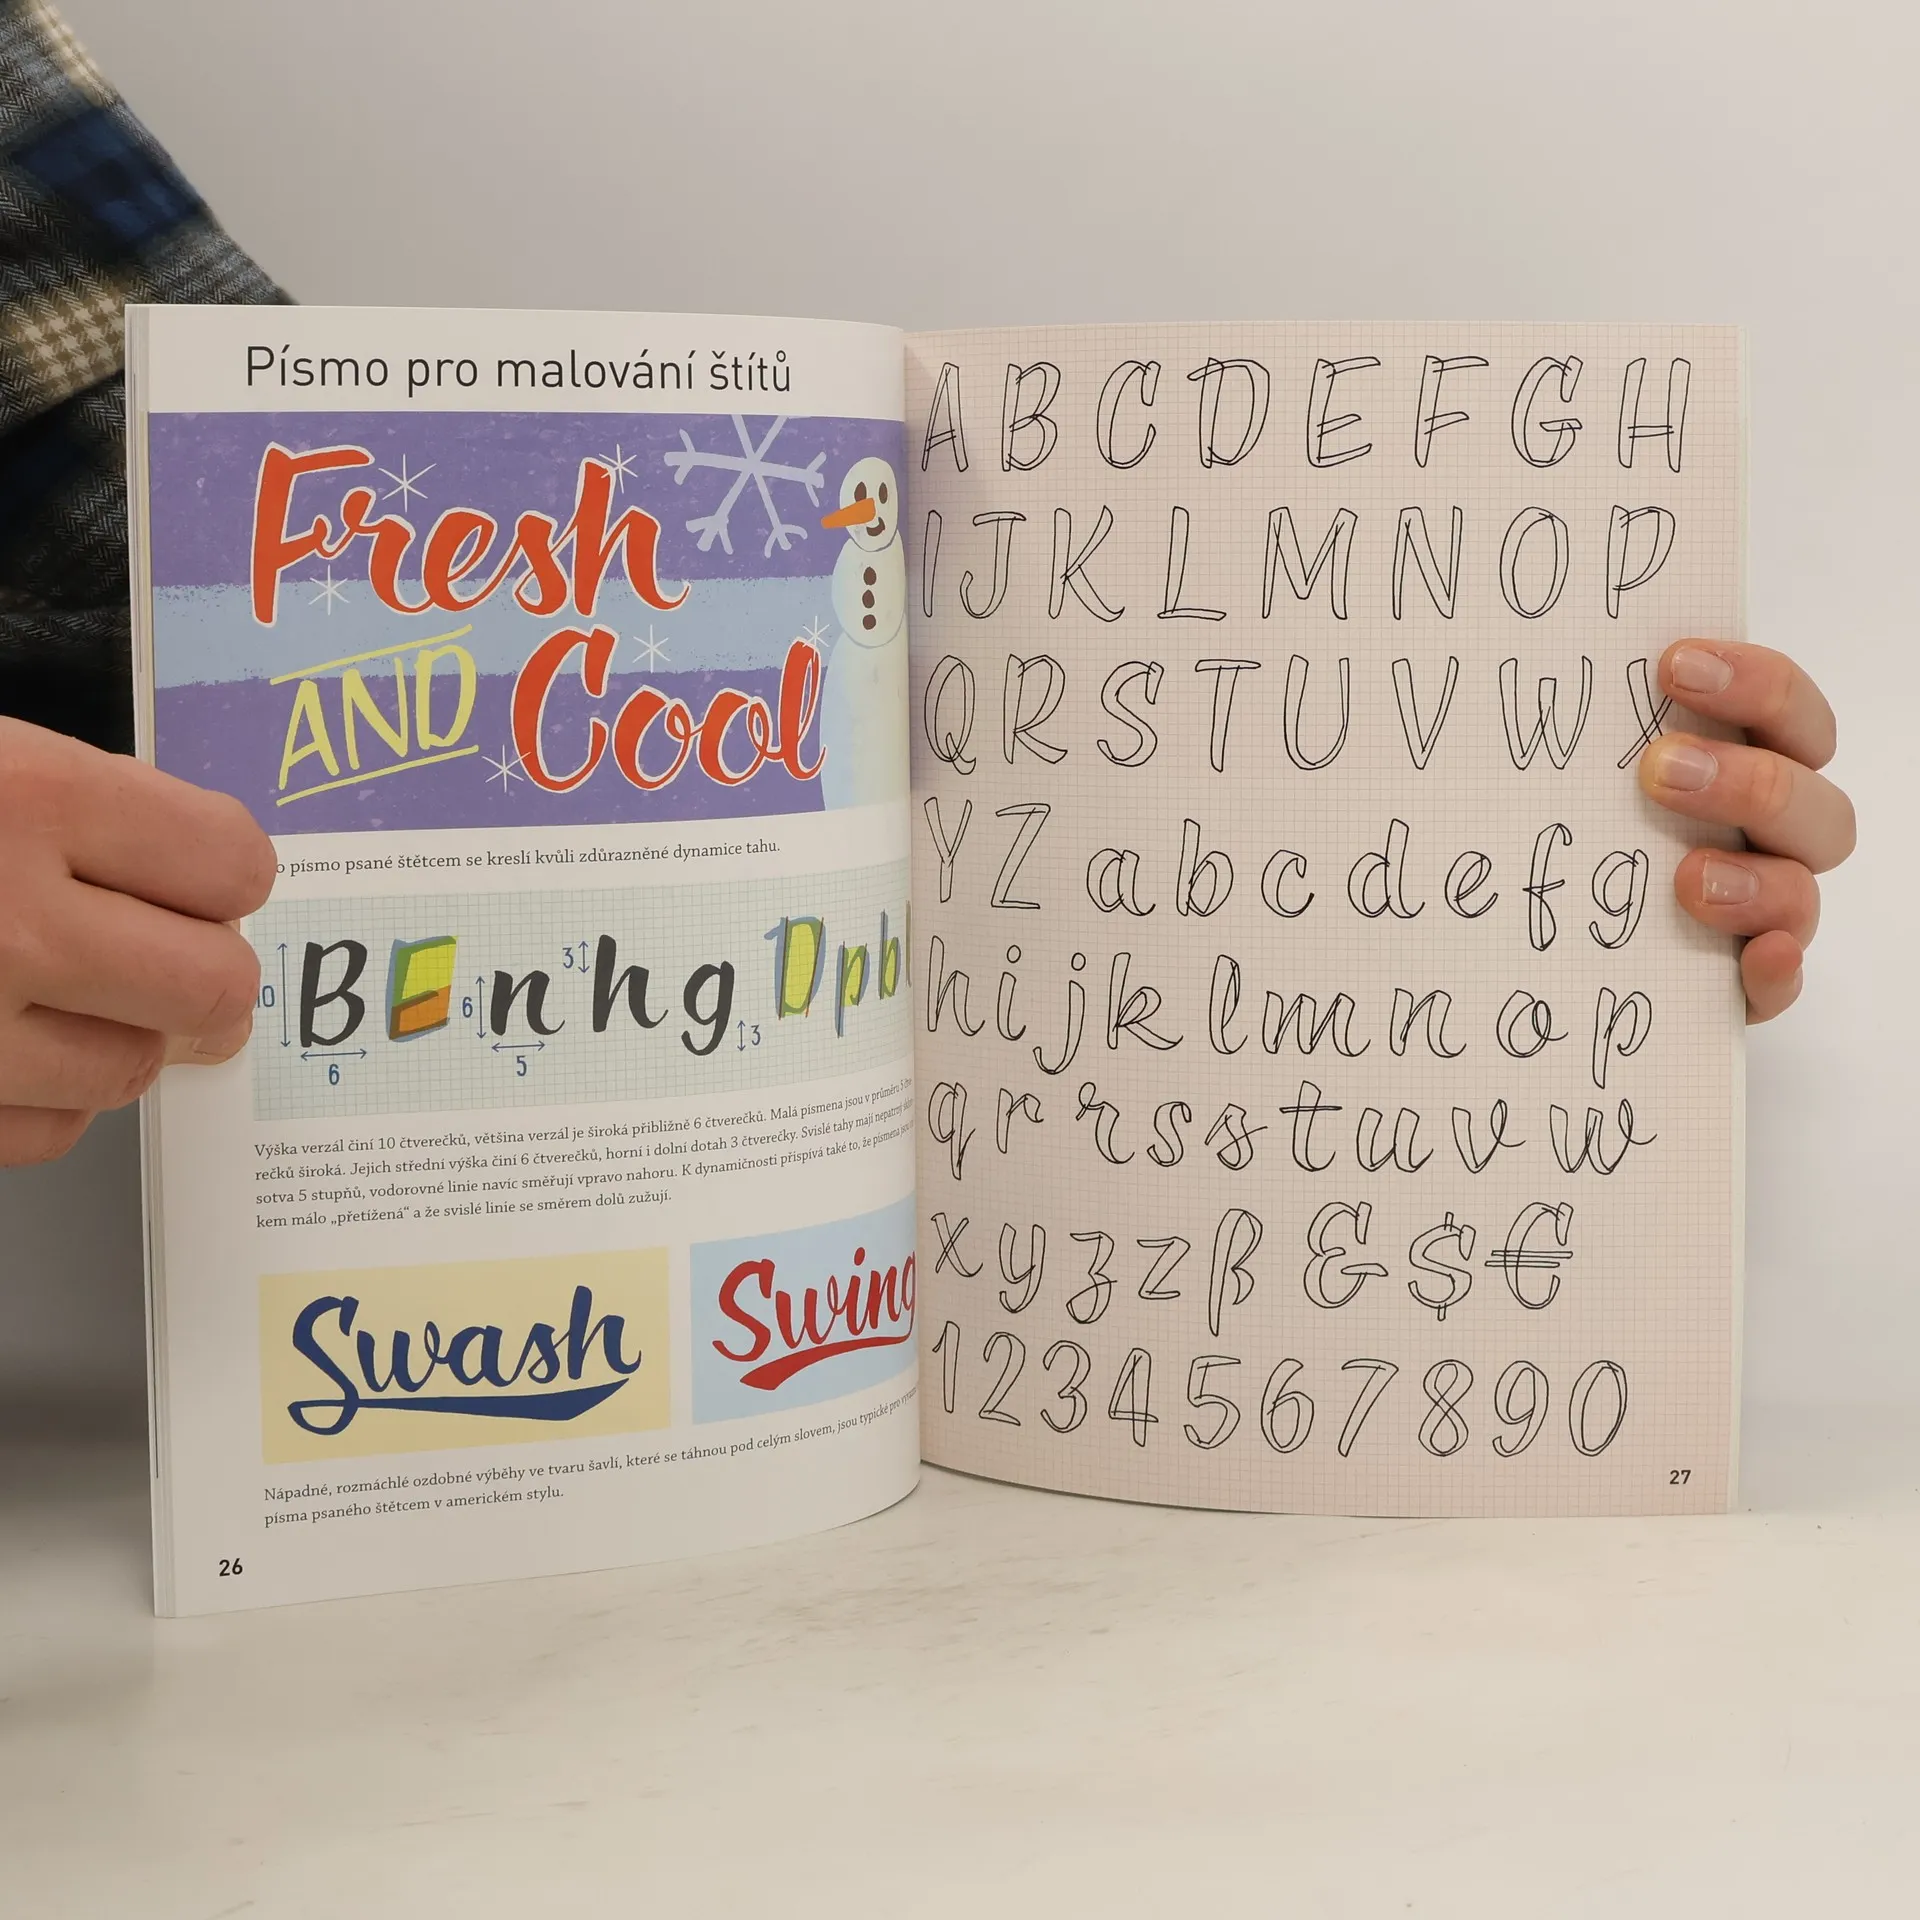 Písmo pro malování štítů
Fresh
AND Cool
písmo psané štětcem se kreslí kvůli zdůrazněné dynamice tahu.
10 B 6 E 6 n 5 3 h g 3 D p b
Výška verzál činí 10 čtverečků, většina verzál je široká přibližně 6 čtverečků. Malá písmena jsou v průměru 5 čtve
rečků široká. Jejich střední výška činí 6 čtverečků, horní i dolní dotah 3 čtverečky. Svislé tahy mají nepatrný
sotva 5 stupňů, vodorovné linie navíc směřují vpravo nahoru. K dynamičnosti přispívá také to, že písmena jsou
kem málo „přetížená“ a že svislé linie se směrem dolů zužují.
Swash
Swing
Nápadné, rozmáchlé ozdobné výběhy ve tvaru šavlí, které se táhnou pod celým slovem, jsou typické pro
písma psaného štětcem v americkém stylu.
26
A B C D E F G H
I J K L M N O P
Q R S T U V W X
Y Z a b c d e f g
h i j k l m n o p
q r r s s t u v w
x y z z ß & $ €
1 2 3 4 5 6 7 8 9 0
27